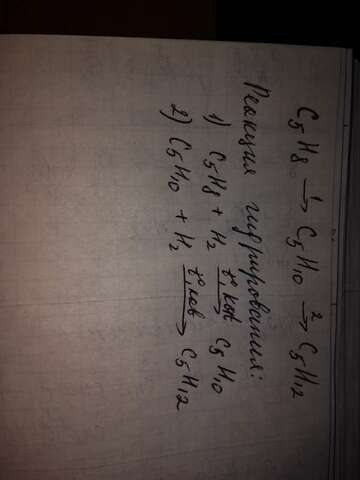 C₅H₈ →¹ C₅H₁₀ →² C₅H₁₂
Реакция гидрирования:
1) C₅H₈ + H₂ →(t°, кат) C₅H₁₀
2) C₅H₁₀ + H₂ →(t°, кат) C₅H₁₂